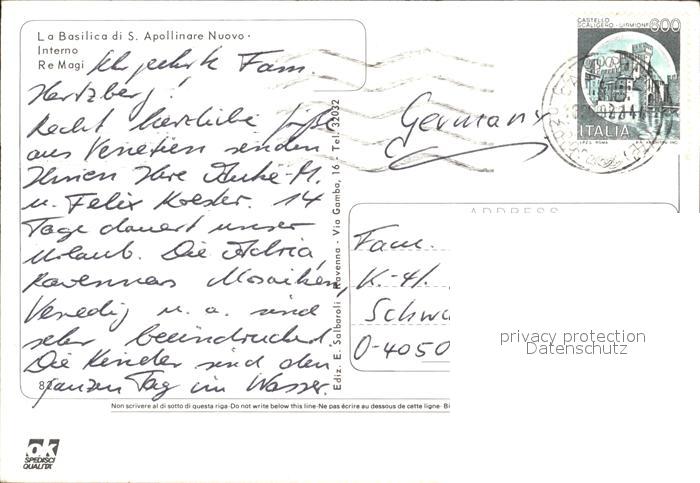 La Basilica di S. Apollinare Nuovo -
Interno
Re Magi
Sehr geehrte Fam.
Hertzberg!
Recht herzliche Grüße
aus Venetien senden
Ihnen Ihre Anke-M.
u. Felix Koester. 14
Tage dauert unser
Urlaub. Die Adria,
Ravennas Mosaiken,
Venedig u. a. sind
sehr beeindruckend.
Die Kinder sind den
ganzen Tag im Wasser.
Ediz. E. Salbaroli - Ravenna - Via Gamba, 16 - Tel. 32032
CASTELLO
SCALIGERO - SIRMIONE
600
ITALIA
I.P.Z.S. ROMA
Germany
ADDRESS
Fam.
K.-H.
Schwa
O-4050
privacy protection
Datenschutz
Non scrivere al di sotto di questa riga-Do not write below this line-Ne pas écrire au dessous de cette ligne-
OK
SPEDISCI
QUALITÀ